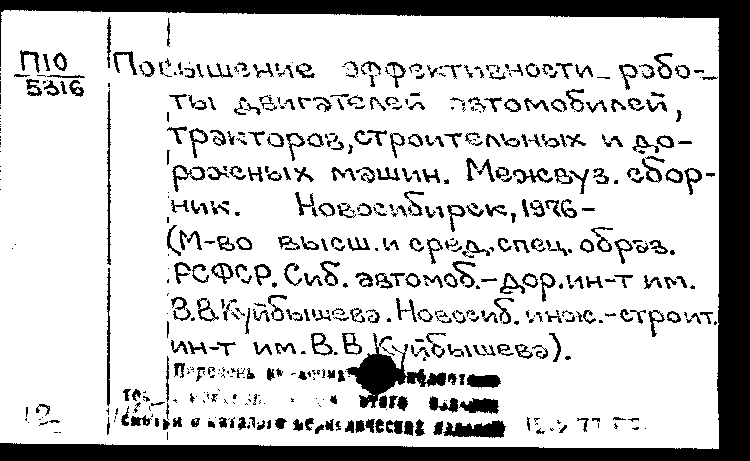 П10
5316
Повышение эффективности рабо-
ты двигателей автомобилей,
тракторов, строительных и до-
рожных машин. Межвуз. сбор-
ник. Новосибирск, 1976-
(М-во высш. и сред. спец. образ.
РСФСР. Сиб. автомоб.-дор. ин-т им.
В.В. Куйбышева. Новосиб. инж.-строит.
ин-т им. В.В. Куйбышева).
Перечень
этого издания
смотри в каталоге периодических изданий
12